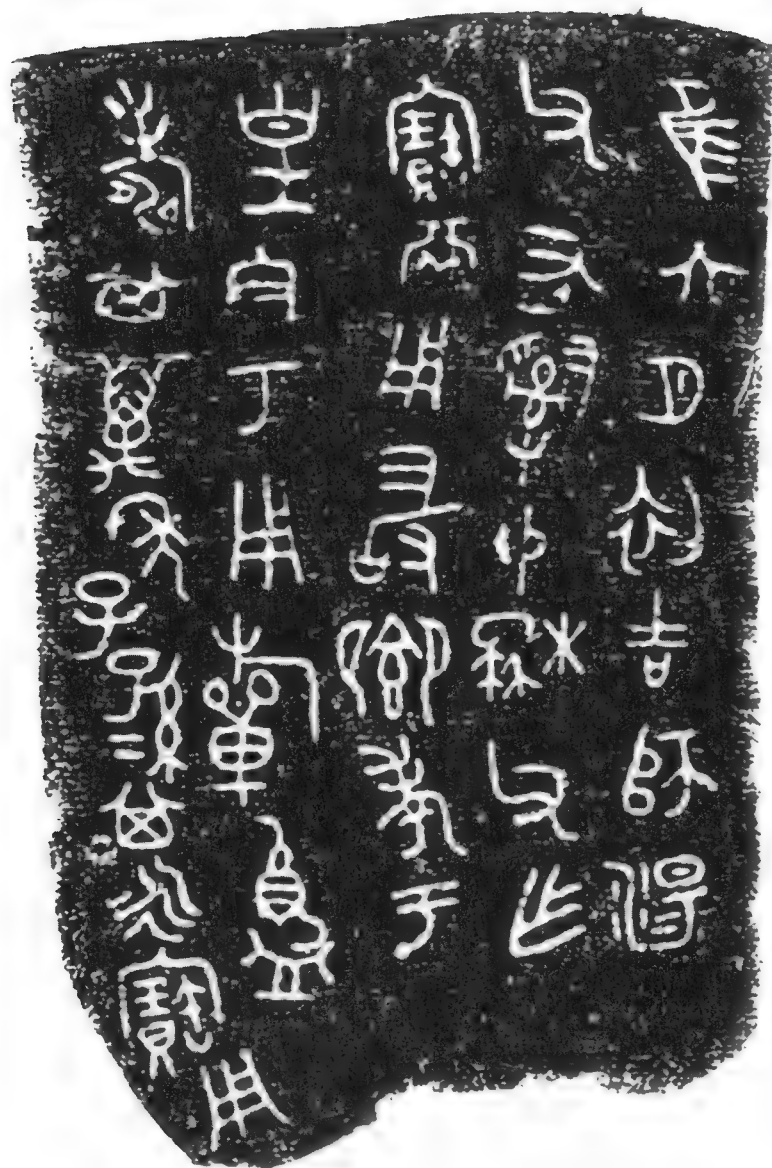 隹六月初吉師湯
父有𤔲中枏父乍
寶鬲用敢鄉孝于
皇且丂用祈眉
壽其萬年子孫=其永寶用